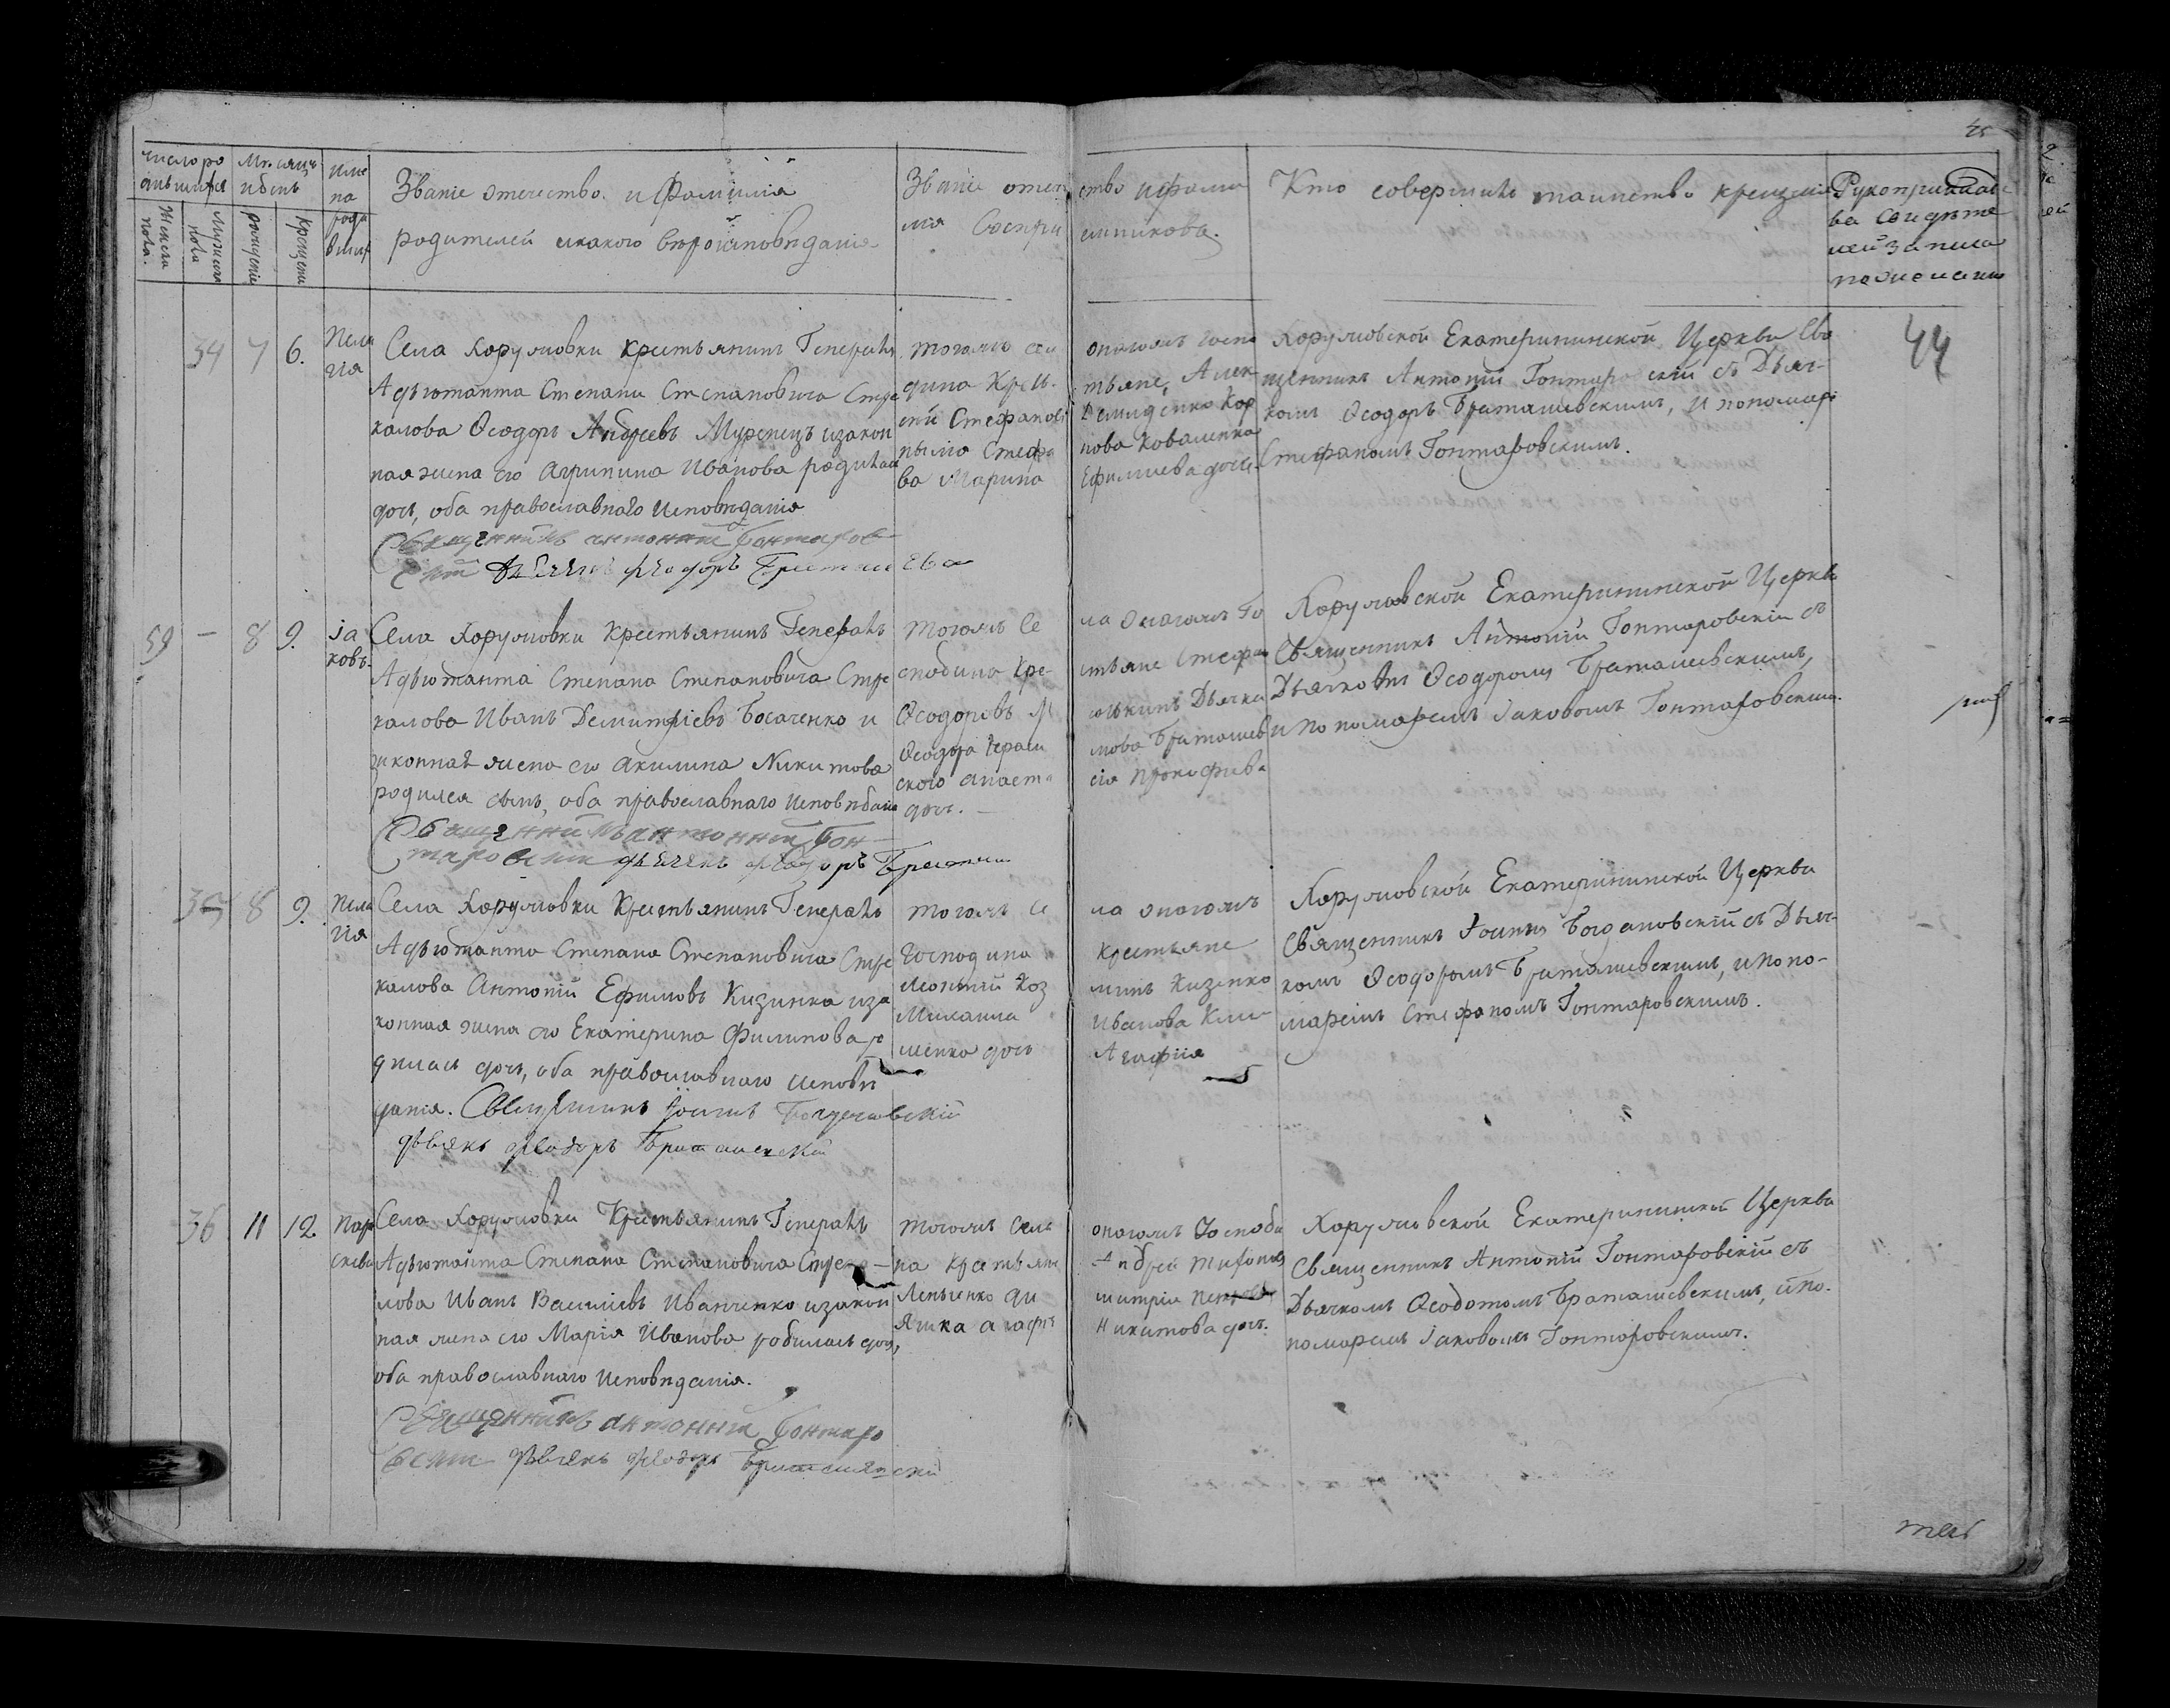 45
число ро
Мѣсяцъ
и день
име
на
роди
Званіе отечество и Фамилія
родителей икакого вѣроисповѣданія
Званіе отече
ство ифами
лія Воспри
емниковъ.
Кто совершилъ таинство крещенія
Рукоприкладс
ва свидѣте
лей записа
по желанію
Женска
пола.
Мужеска
пола
рожденіе
крещени
34 7 6.
Пела
гія
Села Хоружовки крестьянинъ Генералъ
Адъютанта Степана Степановича Стре
калова Ѳеодоръ Андреевъ Муренецъ изакон
ная жена его Агрипина Иванова родилась
дочь, оба православнаго исповѣданія
Священникъ антоній Гонтаров
скій дьячекъ феодоръ Браташ ева
тогожъ се
дина Крес
ній Стефанов
ва Марина
она́гожъ госпо
тьяне, Алек
Демиденко Кор
нова Коваленка
Ефимиева дочь.
Хоружовской Екатерининской Церкви Свя
щенникъ Антоній Гонтаровскій съ Дьяч-
комъ Ѳеодоръ Браташевскимъ, и пономарі
Стефаномъ Гонтаровскимъ.
44
59 — 8 9.
Іа
ковъ.
Села Хоружовки Крестьянинъ Генералъ
Адъютанта Степана Степановича Стре
калова Иванъ Демитріевъ Босаченко и
законная жена его Акилина Никитова
родился сынъ, оба православнаго исповѣдан
Священникъ антоній Гон
таровскій дьячекъ феодоръ Браташ
Тогожъ Се
сподина Кре
Ѳеодоровъ М
Ѳеодора Гераси
ского анаст
дочь. —
ла онагожъ Го
стьяне Стефан
Дьячка
мова Браташев
сія Прокофиева
Хоружовской Екатерининской Церкви
Священникъ Антоній Гонтаровскій съ
Дьячковъ Ѳеодоромъ Браташевскимъ,
и пономаремъ Іаковомъ Гонтаровскимъ.
35 8 9.
Пела
гія
Села Хоружовки Крестьянинъ Генералъ
Адъютанта Степана Степановича Стре
калова Антоній Ефимовъ Кизинка иза
конная жена его Екатерина Филипова ро
дилась дочь, оба православнаго исповѣ
данія. Священникъ Іоаннъ Богдановскій
дьячекъ феодоръ Браташевскій
тогожъ се
Господина
Леонтій Коз
Михаила
менка дочь
ла онагожъ
крестьяне
минъ Кизенко
Иванова Кли
Агафия
Хоружовской Екатерининской Церкви
Священникъ Іоаннъ Богдановскій съ Дьяч-
комъ Ѳеодоромъ Браташевскимъ, и поно-
маремъ Стефаномъ Гонтаровскимъ.
36 11 12.
Пар
скева
Села Хоружовки Крестьянинъ Генералъ
Адъютанта Степана Степановича Стрека-
лова Иванъ Василіевъ Иванченко изакон
ная жена его Марія Иванова родилась дочь,
оба православнаго исповѣданія.
Священникъ антоній Гонтаро
вскій дьячекъ феодоръ Браташевскій
тогожъ села
на крестьяни
Леньченко Ди
яшка агафи
онагожъ Господи
Андрей Тифонов
митрія
Никитова дочь.
Хоружовской Екатерининской Церкви
Священникъ Антоній Гонтаровскій съ
Дьячкомъ Ѳеодотомъ Браташевскимъ, и по-
номаремъ Іаковомъ Гонтаровскимъ.